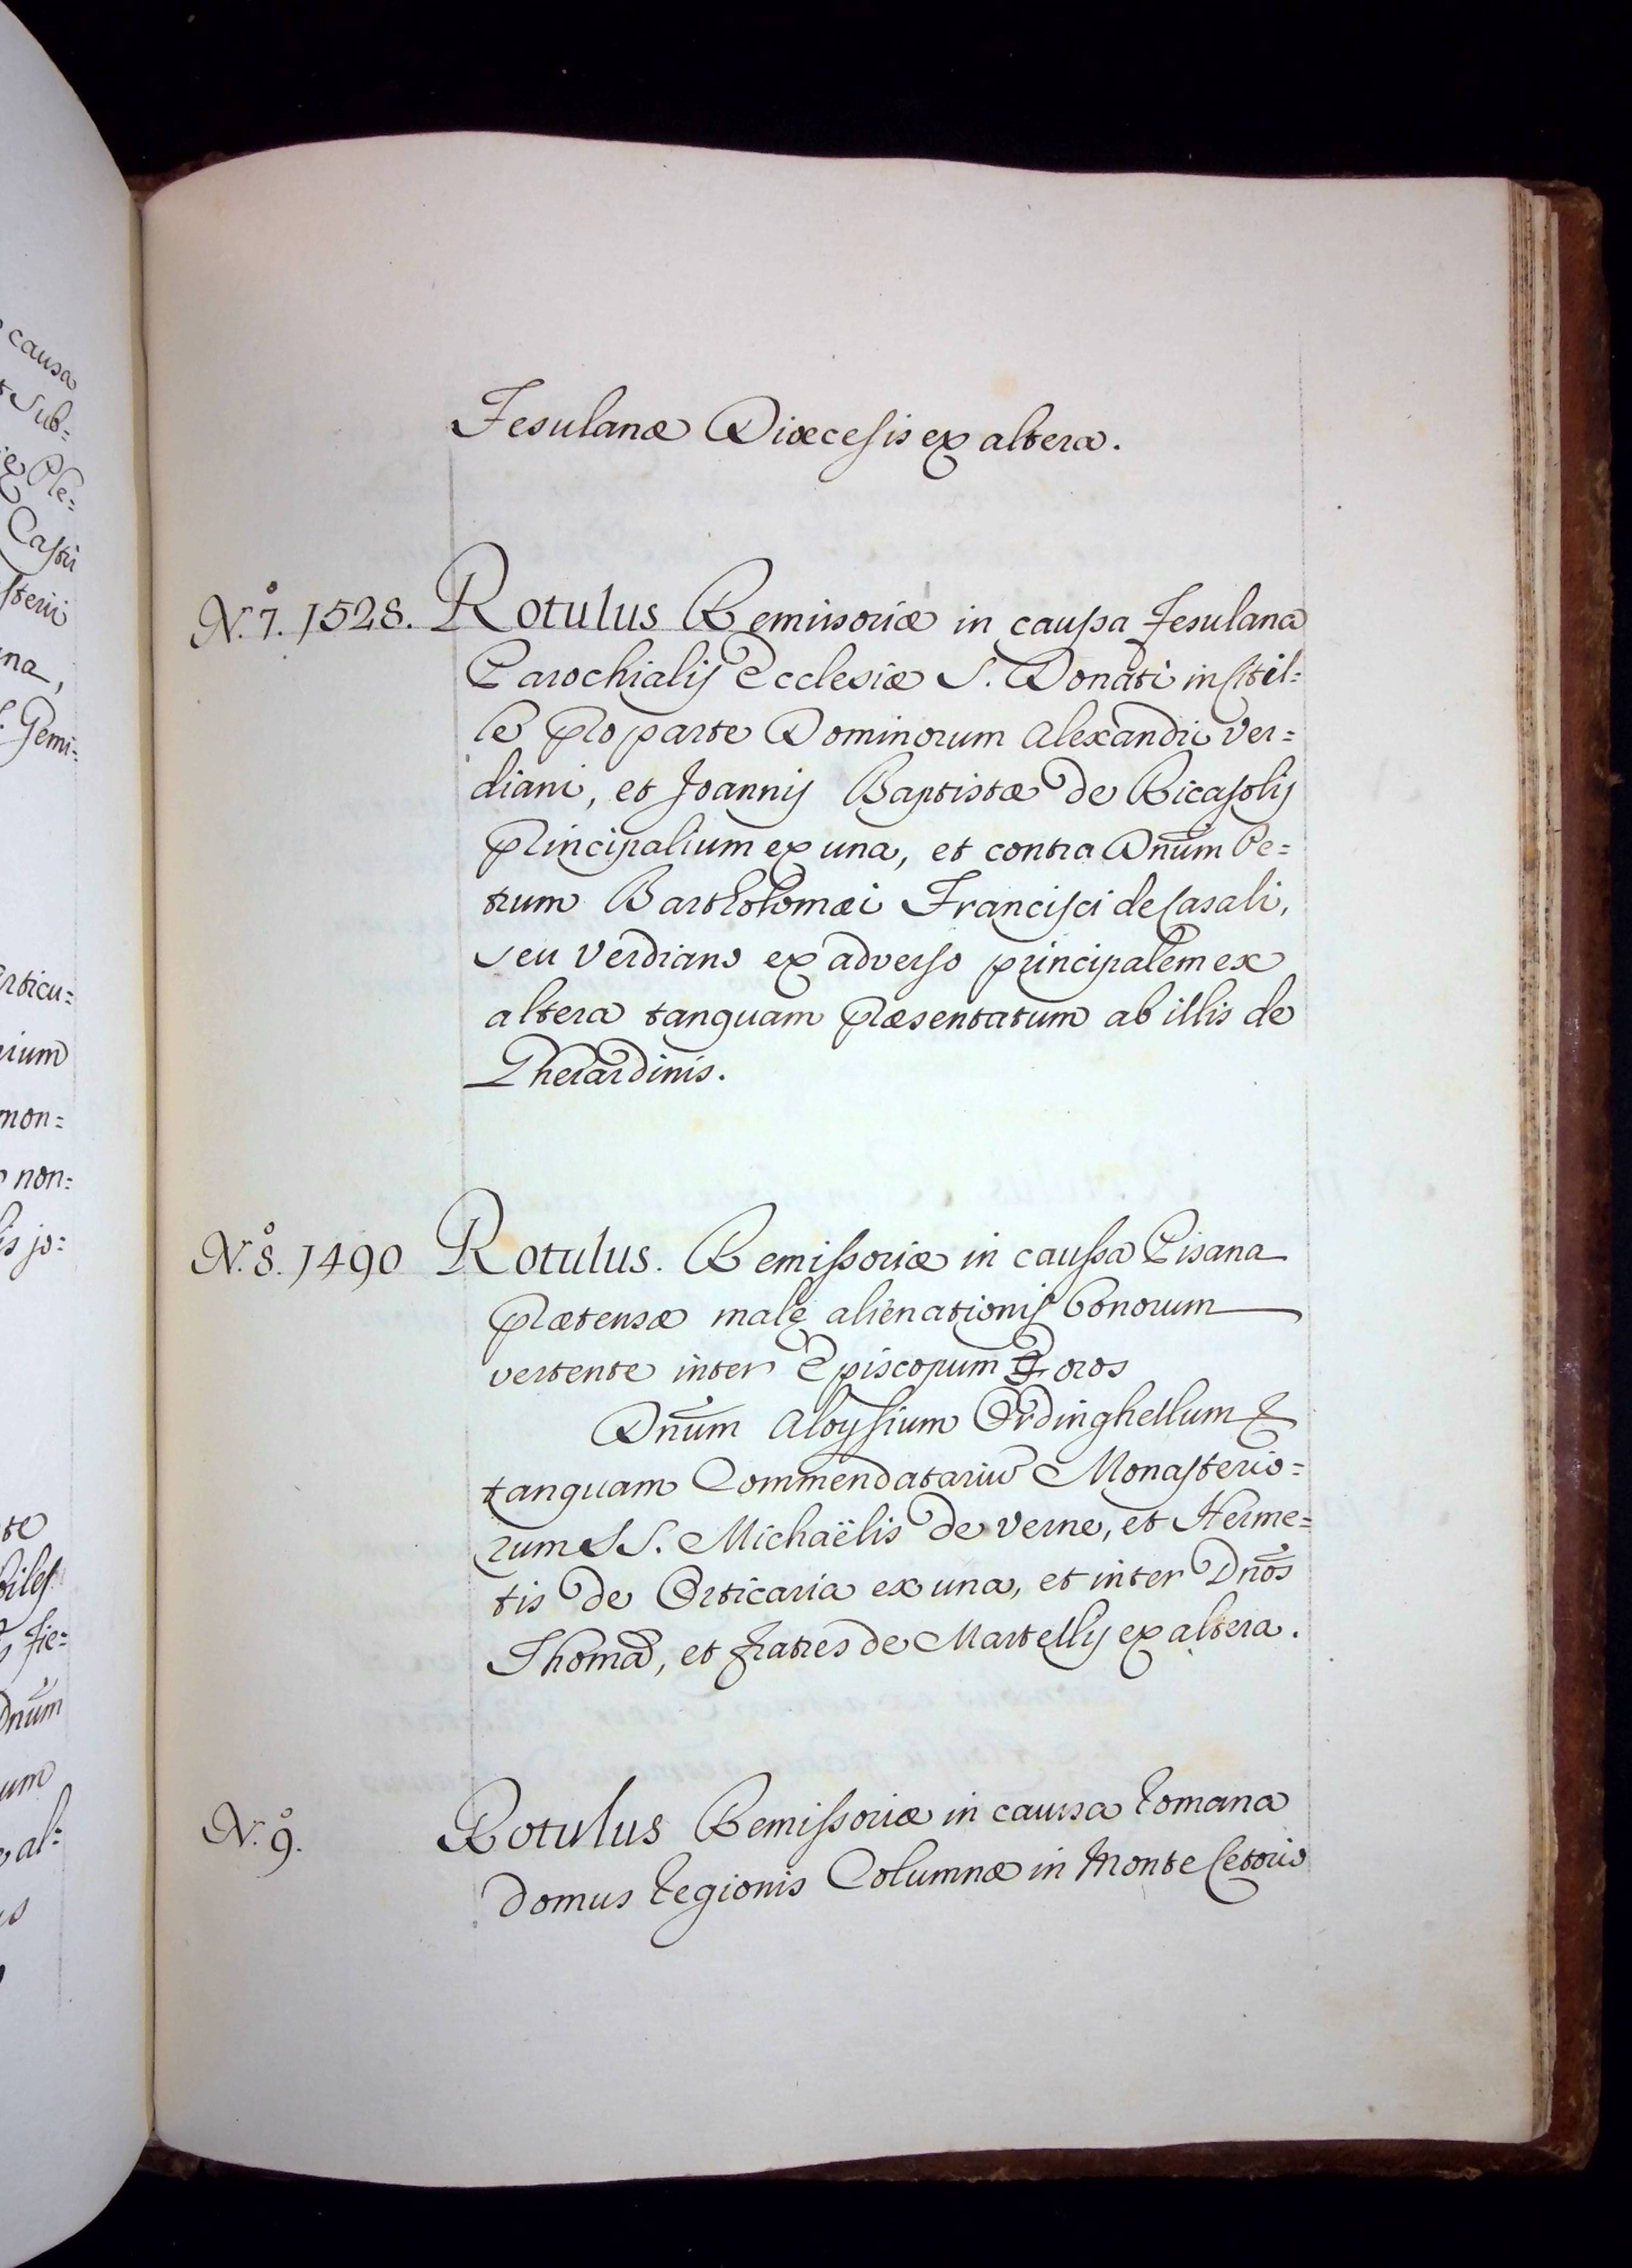 causa
t Sub=
Ple=
Castri
sterii
na,
S. Gemi=
Articu=
rium
mon=
non=
is jo=
te
biles
s Fie=
Dnūm
um
al=
Fesulanæ Diœcesis ex altera.
N.° 7. 1528. Rotulus Remissoriæ in caussa Fesulana
Parochialis Ecclesiæ S. Donati in Stil=
le pro parte Dominorum Alexandri Ver=
diani, et Joannis Baptistæ de Ricasolis
Principalium ex una, et contra Dnūm Pe=
trum Bartholomæi Francisci de Casali,
seu Verdiano ex adverso principalem ex
altera tanquam præsentatum ab illis de
Gherardinis.
N.° 8. 1490 Rotulus. Remissoriæ in caussa Pisana
prætensæ malę alienationis bonorum
vertente inter Episcopum Foros
Dnūm Aloysium Ordinghellum &
tanquam Commendatariū Monasterio=
rum SS. Michaëlis de Verne, et Herme=
tis de Orticaria ex una, et inter Dnōs
Thomā, et Fratres de Martellis ex altera.
N.° 9. Rotulus Remissoriæ in caussa Romana
domus Regionis Columnæ in Monte Cetorio